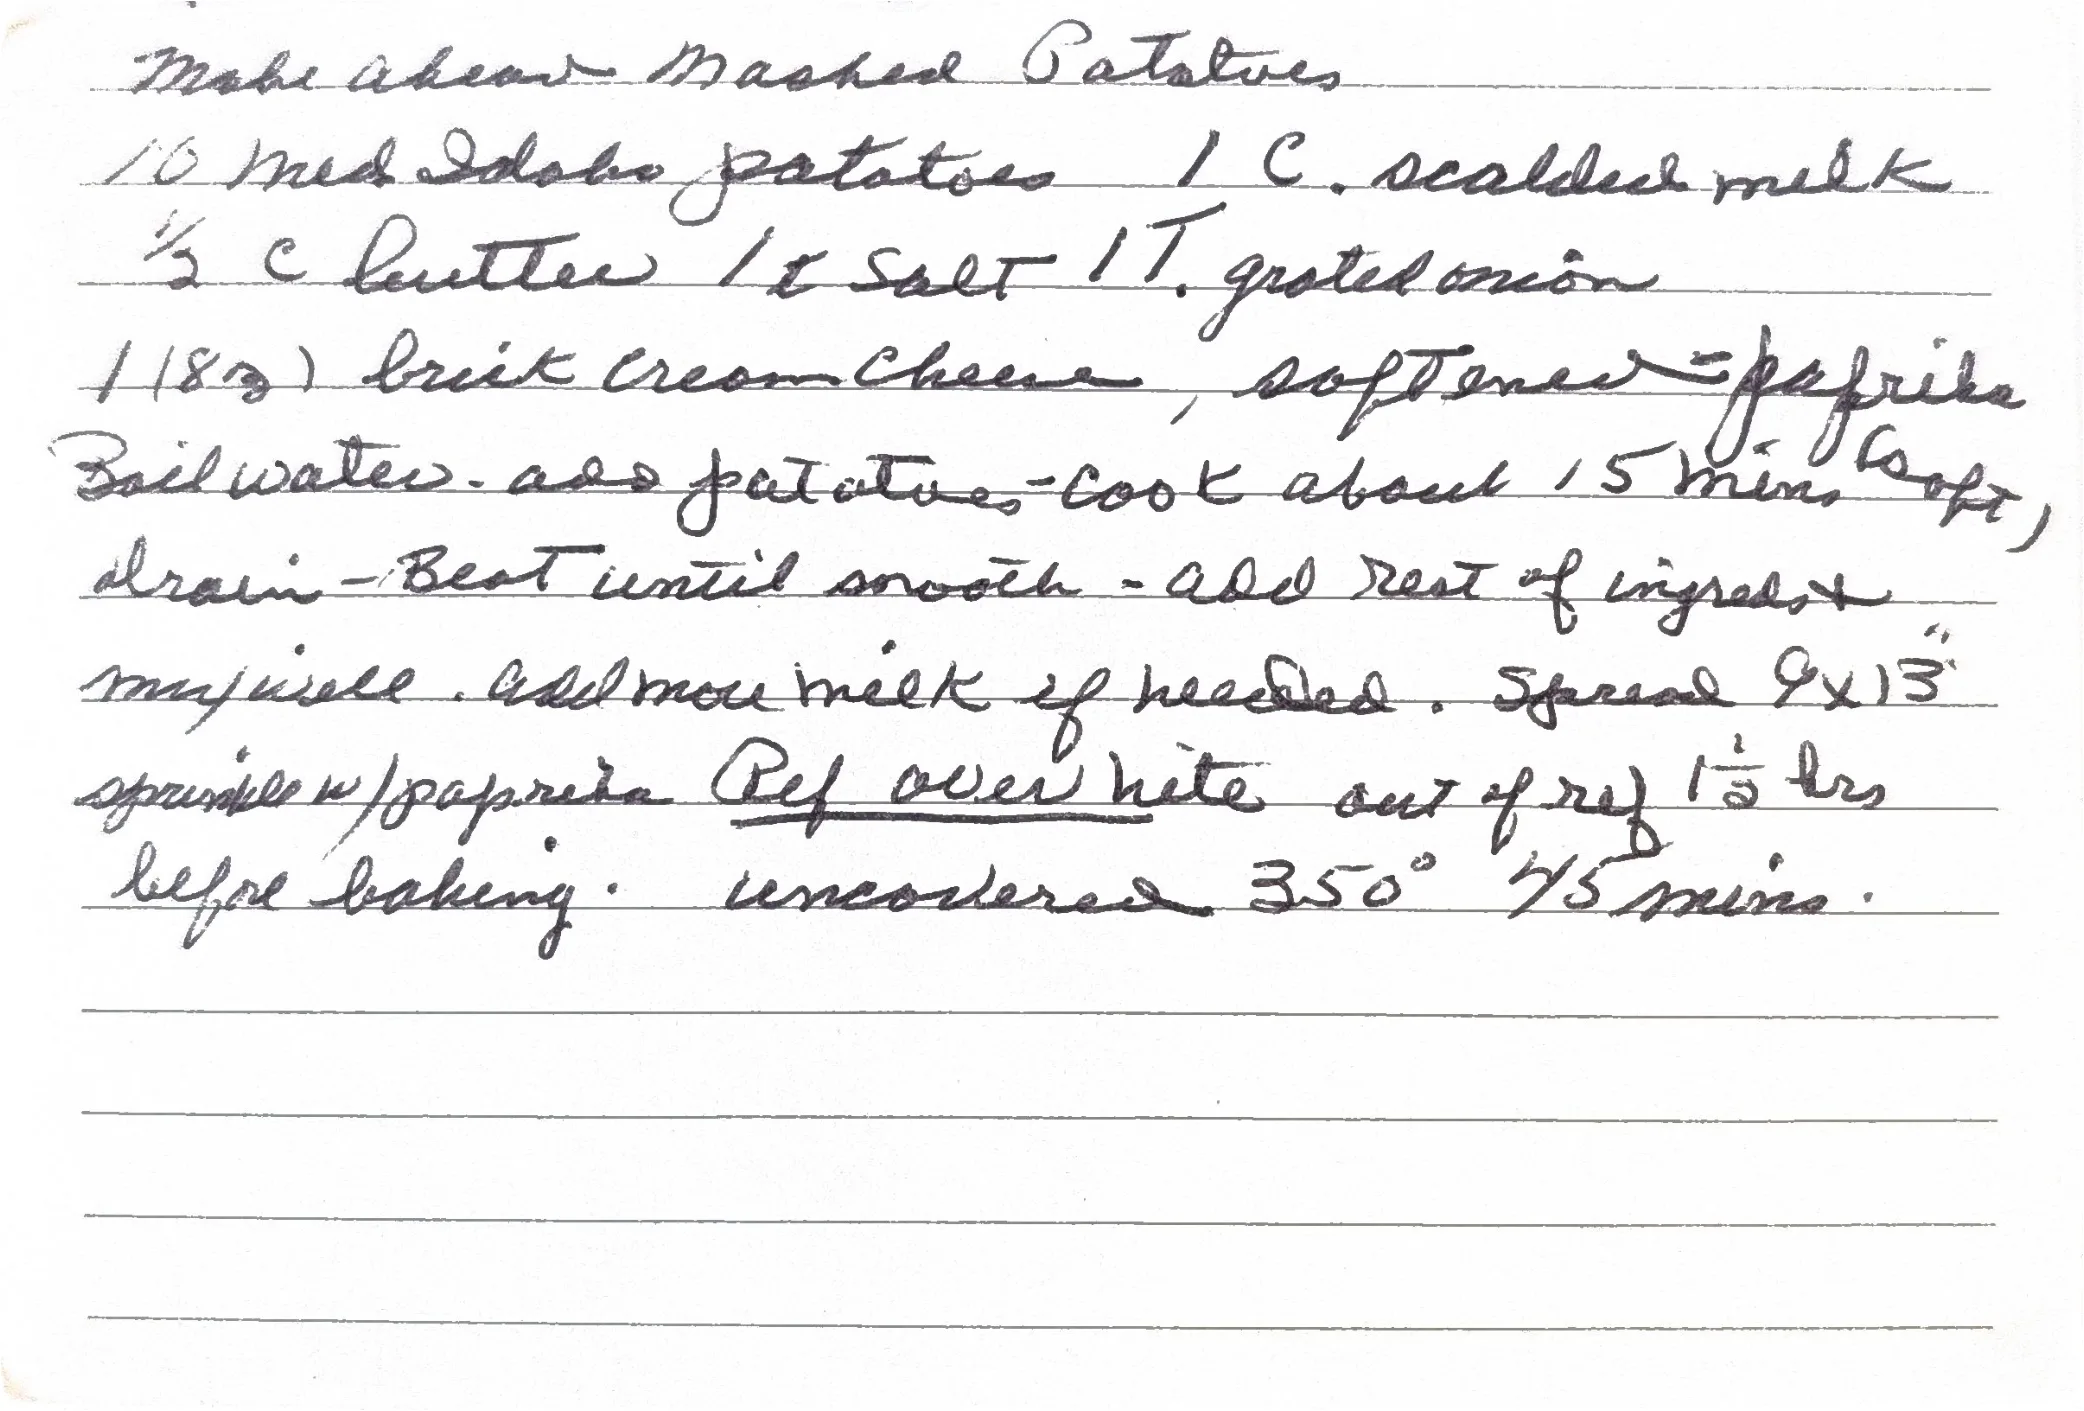 Make ahead Mashed Potatoes
10 med Idaho potatoes 1 C. scalded milk
1/2 C butter 1 t salt 1 T. grated onion
1 (8 oz) brick cream cheese, softened = paprika
Boil water - add potatoes - cook about 15 mins soft,
drain - Beat until smooth - add rest of ingreds +
mix well. add more milk if needed. Spread 9x13"
sprinkle w/paprika Ref over nite out of ref 1 1/2 hrs
before baking. uncovered 350° 45 mins.